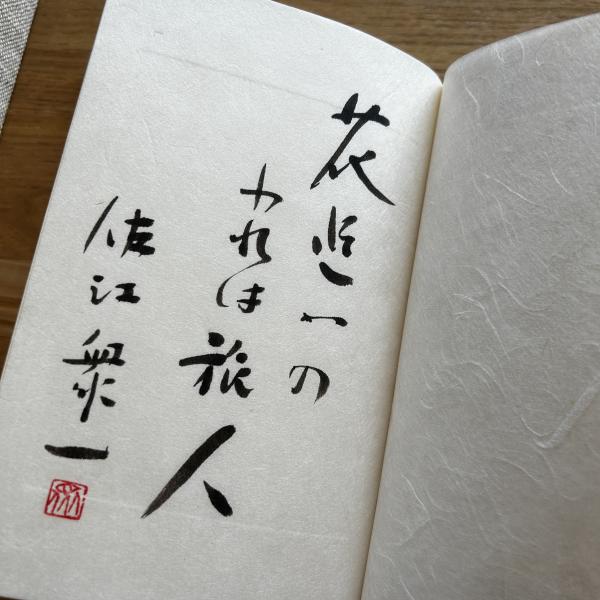 花への
われは旅人
佐江衆一